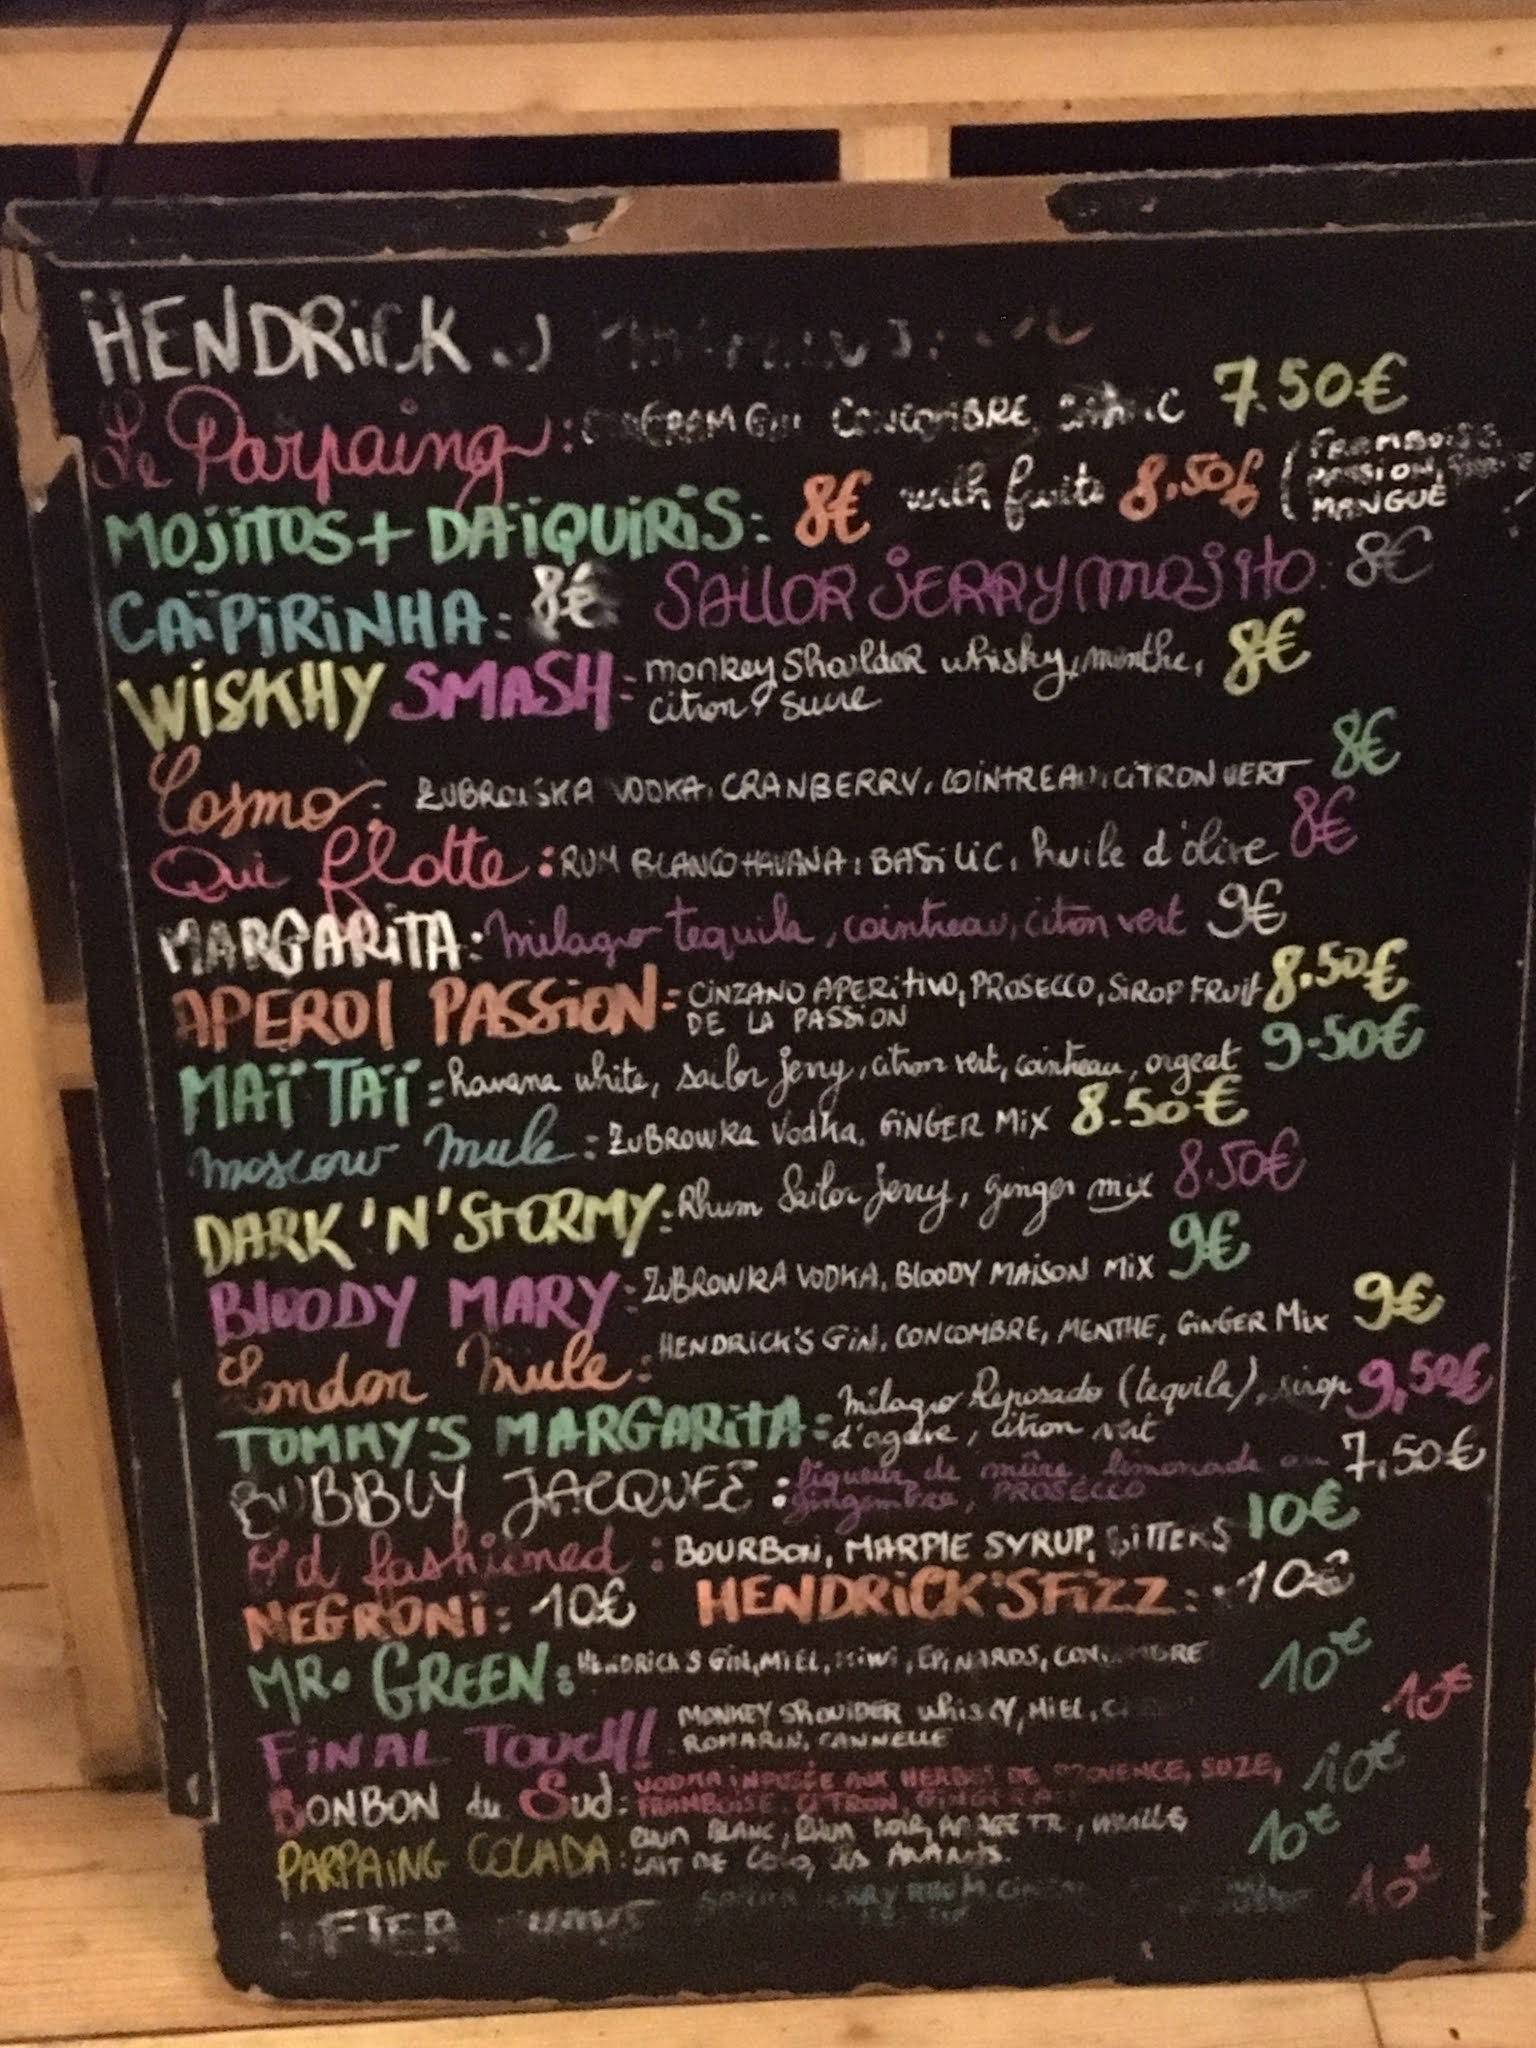 HENDRICK
Le Parpaing: CONCOMBRE, 7.50€
MOJITOS + DAÏQUIRIS: 8€ with fruits 8.50€ (FRAMBOISE,
PASSION,
MANGUE
CAÏPIRINHA: 8€ SAILOR JERRY MOJITO: 8€
WISKHY SMASH: monkey shoulder whisky, menthe, 8€
citron, sucre
Cosmo: VODKA, CRANBERRY, COINTREAU, CITRON VERT 8€
Qui flotte: RUM BLANCO HAVANA, BASILIC, huile d'olive 8€
MARGARITA: milagro tequila, cointreau, citron vert 9€
APEROL PASSION: CINZANO APERITIVO, PROSECCO, SIROP FRUIT 8.50€
DE LA PASSION
MAÏ TAÏ: havana white, sailor jerry, citron vert, cointreau, orgeat 9.50€
moscow mule: ZUBROWKA Vodka, GINGER MIX 8.50€
DARK 'N' STORMY: Rhum Sailor jerry, ginger mix 8.50€
BLOODY MARY: ZUBROWKA VODKA, BLOODY MAISON MIX 9€
London Mule: HENDRICK'S GIN, CONCOMBRE, MENTHE, GINGER MIX 9€
TOMMY'S MARGARITA: milagro Reposado (tequila), sirop 9,50€
d'agave, citron vert
BUBBLY JACQUEE: liqueur de mûre, limonade au 7,50€
gingembre, PROSECCO
Old fashioned: BOURBON, MARPLE SYRUP, BITTERS 10€
NEGRONI: 10€ HENDRICK'S FIZZ: 10€
MR. GREEN: HENDRICK'S GIN, MIEL, KIWI, EPINARDS, CONCOMBRE 10€
FINAL TOUCH! MONKEY SHOULDER whisky, MIEL, 10€
ROMARIN, CANNELLE
BONBON du Sud: VODKA INFUSÉE AUX HERBES DE PROVENCE, SUZE, 10€
FRAMBOISE, CITRON,
PARPAING COLADA: RHUM BLANC, RHUM NOIR, 10€
LAIT DE COCO, JUS ANANAS.
AFTER 10€